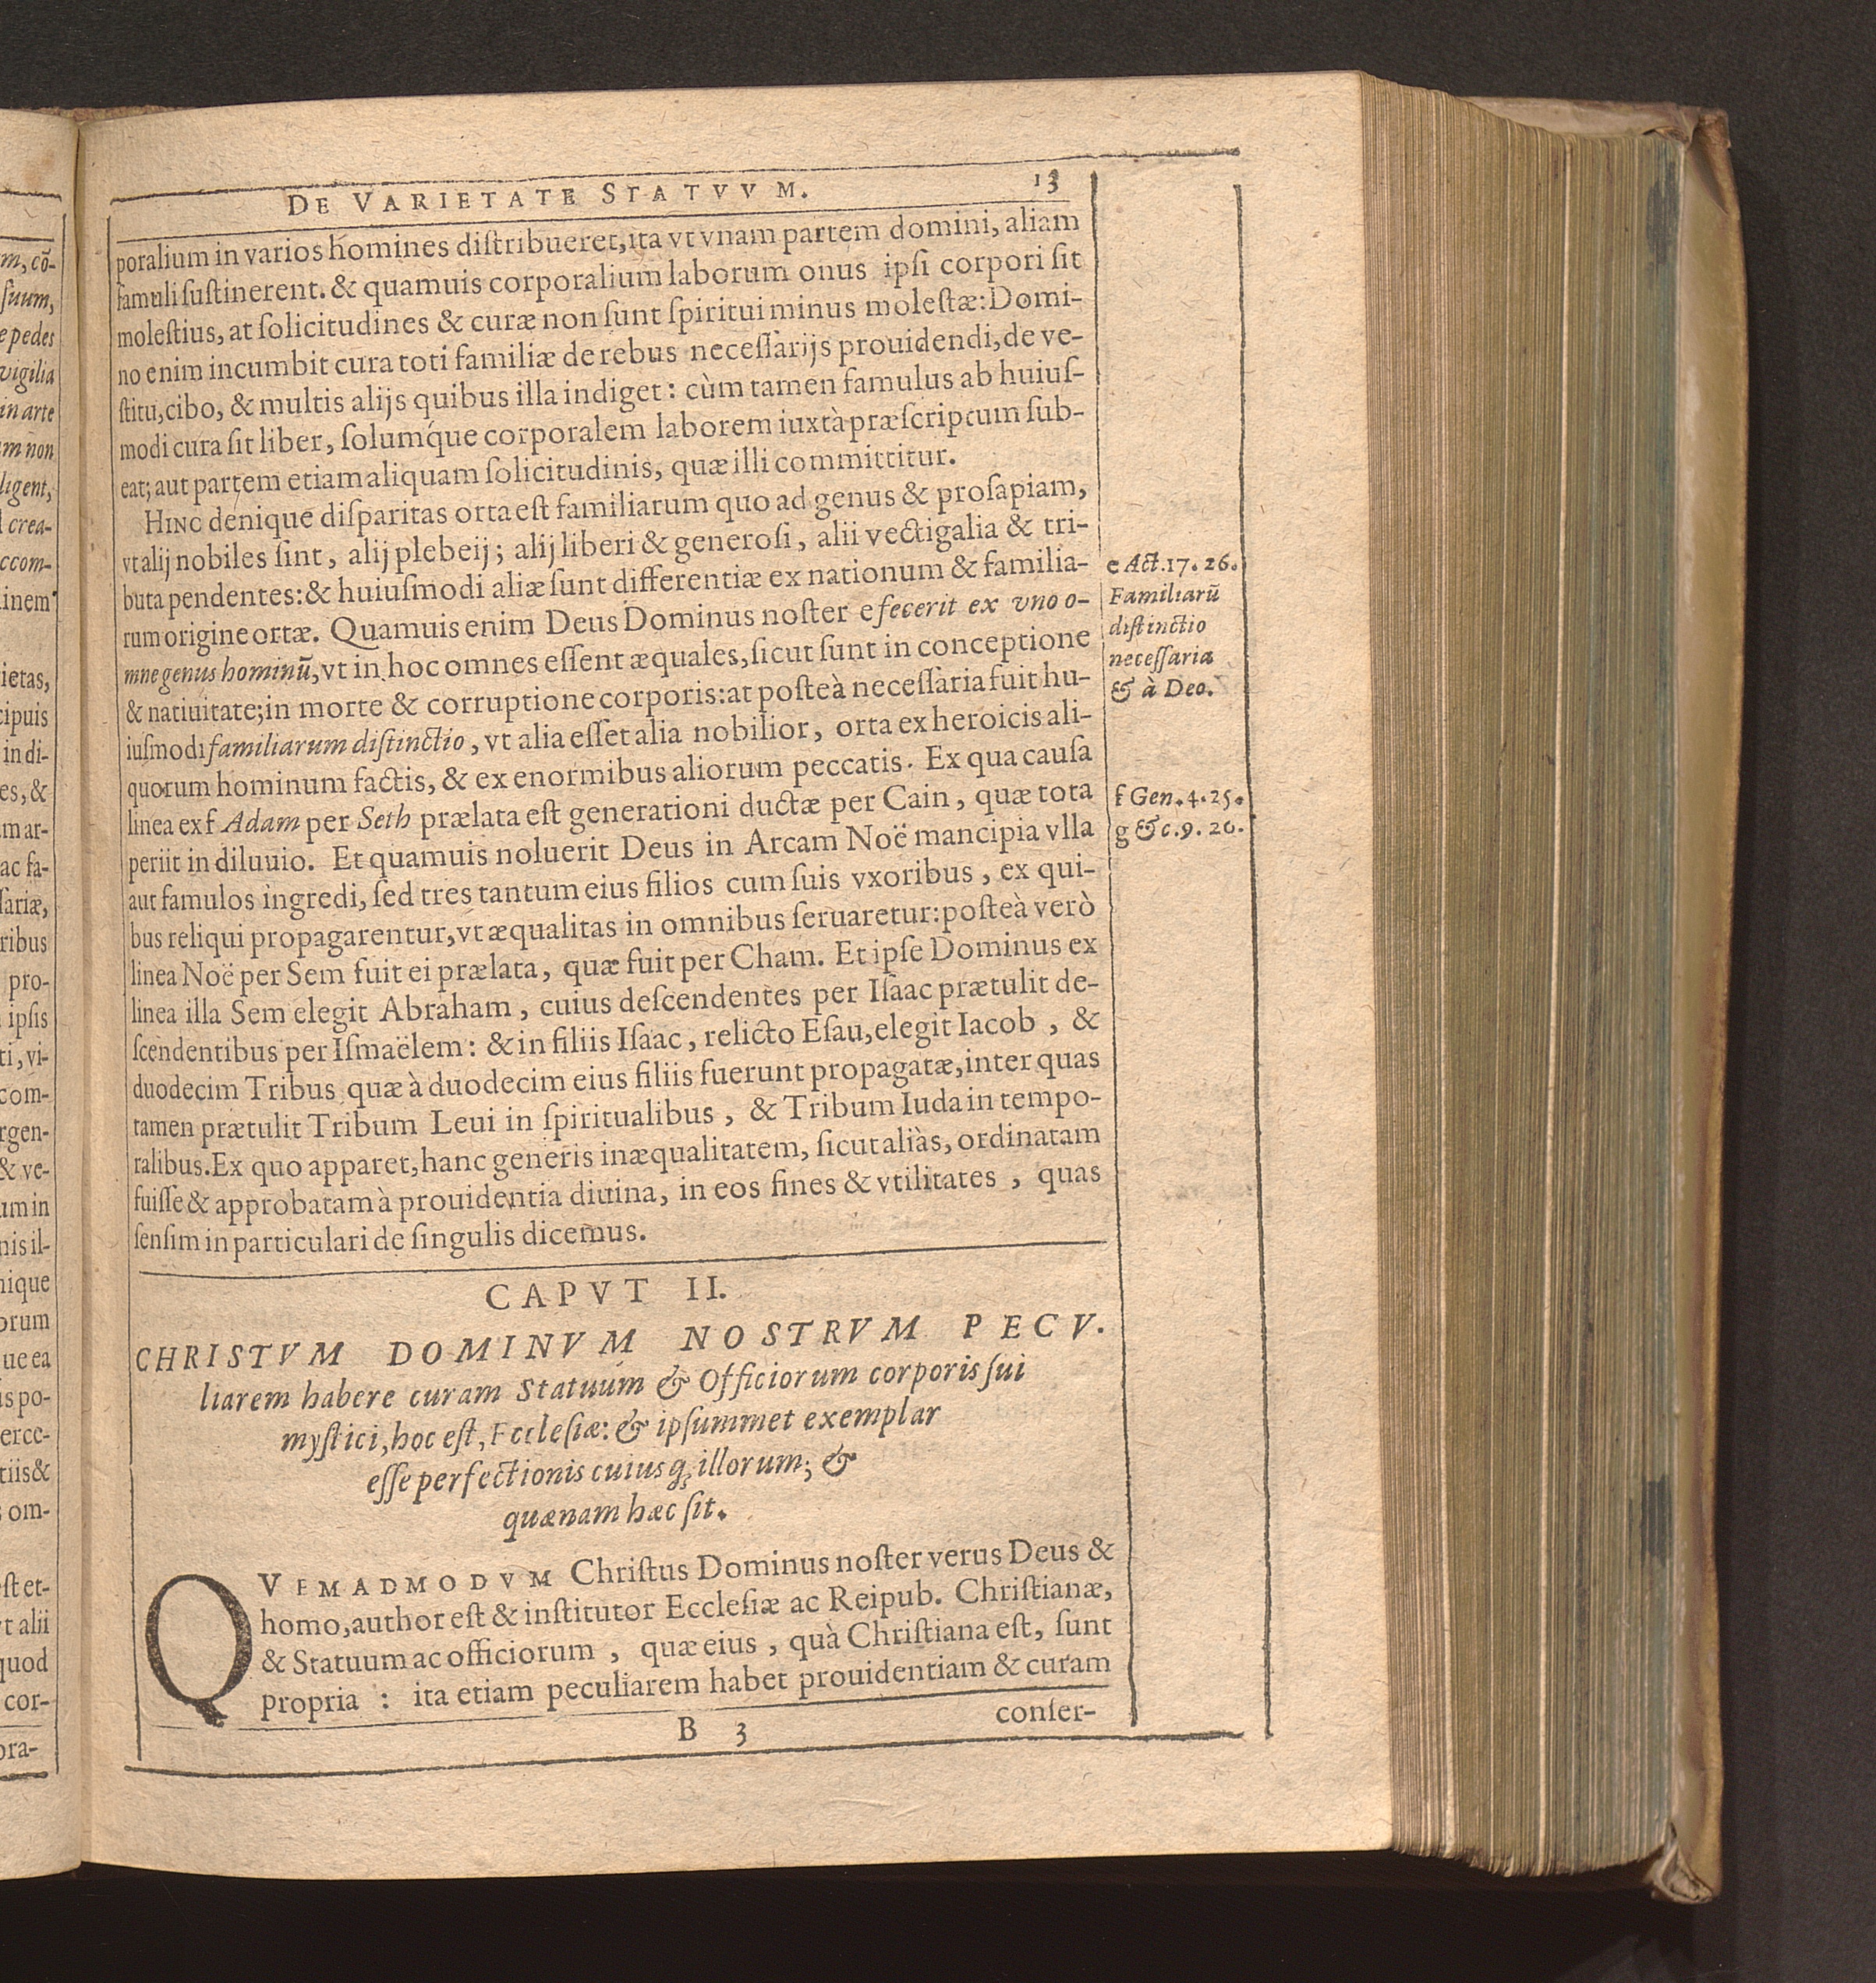 DE VARIETATE STATVVM. 13
poralium in varios homines distribueret, ita vt vnam partem domini, aliam
famuli sustinerent. & quamuis corporalium laborum onus ipsi corpori sit
molestius, at solicitudines & curæ non sunt spiritui minus molestæ: Domi-
no enim incumbit cura toti familiæ de rebus necessarijs prouidendi, de ve-
stitu, cibo, & multis alijs quibus illa indiget: cùm tamen famulus ab huius-
modi cura sit liber, solumq́ue corporalem laborem iuxtà præscriptum sub-
eat; aut partem etiam aliquam solicitudinis, quæ illi committitur.
HINC denique disparitas orta est familiarum quo ad genus & prosapiam,
vt alij nobiles sint, alij plebeij; alij liberi & generosi, alii vectigalia & tri-
buta pendentes: & huiusmodi aliæ sunt differentiæ ex nationum & familia-
rum origine ortæ. Quamuis enim Deus Dominus noster e fecerit ex vno o-
mne genus hominū, vt in hoc omnes essent æquales, sicut sunt in conceptione
& natiuitate; in morte & corruptione corporis: at posteà necessaria fuit hu-
iusmodi familiarum distinctio, vt alia esset alia nobilior, orta ex heroicis ali-
quorum hominum factis, & ex enormibus aliorum peccatis. Ex qua causa
linea ex f Adam per Seth prælata est generationi ductæ per Cain, quæ tota
periit in diluuio. Et quamuis noluerit Deus in Arcam Noë mancipia vlla
aut famulos ingredi, sed tres tantum eius filios cum suis vxoribus, ex qui-
bus reliqui propagarentur, vt æqualitas in omnibus seruaretur: posteà verò
linea Noë per Sem fuit ei prælata, quæ fuit per Cham. Et ipse Dominus ex
linea illa Sem elegit Abraham, cuius descendentes per Isaac prætulit de-
scendentibus per Ismaëlem: & in filiis Isaac, relicto Esau, elegit Iacob, &
duodecim Tribus quæ à duodecim eius filiis fuerunt propagatæ, inter quas
tamen prætulit Tribum Leui in spiritualibus, & Tribum Iuda in tempo-
ralibus. Ex quo apparet, hanc generis inæqualitatem, sicut aliàs, ordinatam
fuisse & approbatam à prouidentia diuina, in eos fines & vtilitates, quas
sensim in particulari de singulis dicemus.
e Act. 17. 26.
Familiarū
distinctio
necessaria
& à Deo.
f Gen. 4. 25.
g & c. 9. 20.
CAPVT II.
CHRISTVM DOMINVM NOSTRVM PECV.
liarem habere curam Statuúm & Officiorum corporis sui
mystici, hoc est, Ecclesiæ: & ipsummet exemplar
esse perfectionis cuiusq; illorum; &
quænam hæc sit.
QVEMADMODVM Christus Dominus noster verus Deus &
homo, author est & institutor Ecclesiæ ac Reipub. Christianæ,
& Statuum ac officiorum, quæ eius, quà Christiana est, sunt
propria: ita etiam peculiarem habet prouidentiam & curam
B 3 conser-
m, cō-
suum,
e pedes
vigilia
in arte
m non
ligent,
crea-
ccom-
inem
ietas,
cipuis
in di-
es, &
m ar-
ac fa-
sariæ,
ribus
pro-
ipsis
ti, vi-
com-
rgen-
& ve-
um in
nis il-
nique
orum
ue ea
is po-
erce-
tiis &
om-
st et-
t alii
quod
cor-
ora-